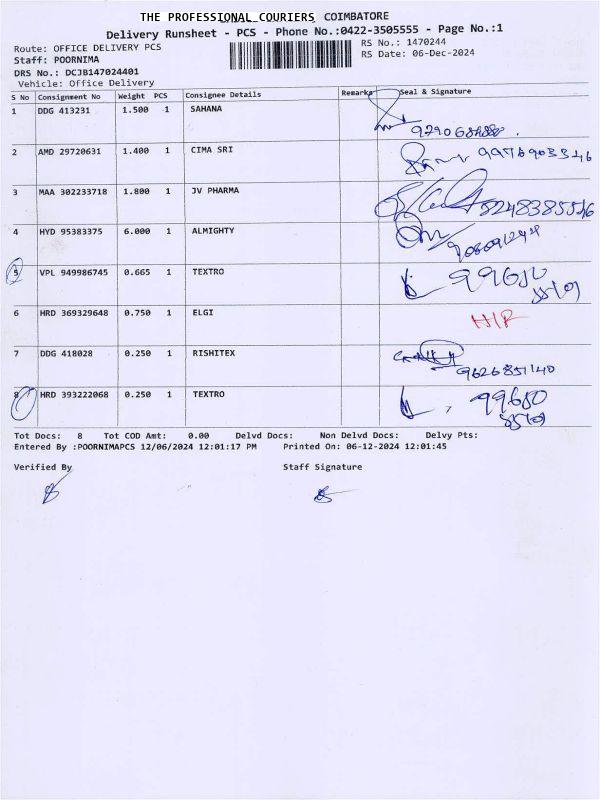 THE PROFESSIONAL COURIERS COIMBATORE
Delivery Runsheet - PCS - Phone No.:0422-3505555 - Page No.:1
Route: OFFICE DELIVERY PCS
RS No.: 1470244
Staff: POORNIMA
RS Date: 06-Dec-2024
DRS No.: DCJB147024401
Vehicle: Office Delivery
S No Consignment No Weight PCS Consignee Details Remarks Seal & Signature
1 DDG 413231 1.500 1 SAHANA
2 AMD 29720631 1.400 1 CIMA SRI
3 MAA 302233718 1.800 1 JV PHARMA
8248385546
4 HYD 95383375 6.000 1 ALMIGHTY
5 VPL 949986745 0.665 1 TEXTRO
99650
6 HRD 369329648 0.750 1 ELGI
H/R
7 DDG 418028 0.250 1 RISHITEX
9626851140
8 HRD 393222068 0.250 1 TEXTRO
99650
Tot Docs: 8 Tot COD Amt: 0.00 Delvd Docs: Non Delvd Docs: Delvy Pts:
Entered By :POORNIMAPCS 12/06/2024 12:01:17 PM Printed On: 06-12-2024 12:01:45
Verified By Staff Signature